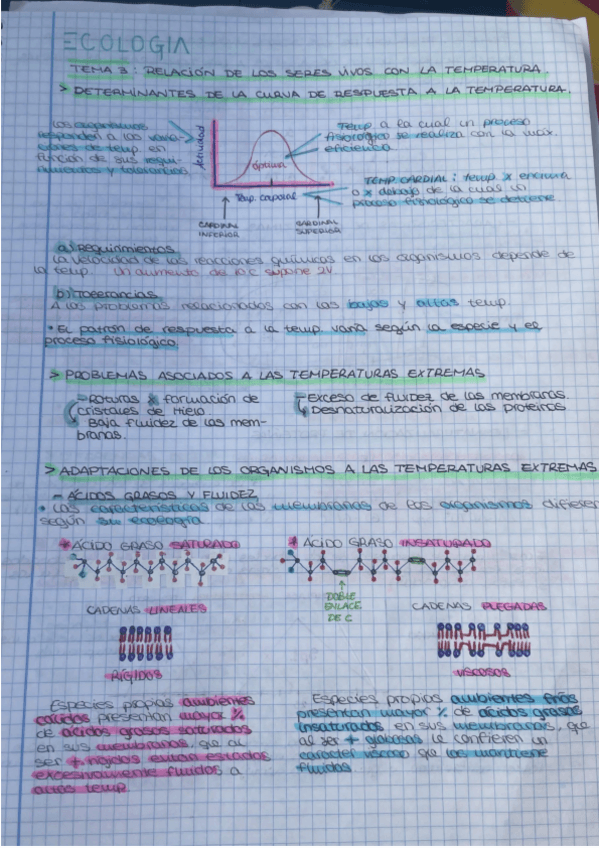 ECOLOGIA
TEMA 3: RELACIÓN DE LOS SERES VIVOS CON LA TEMPERATURA.
> DETERMINANTES DE LA CURVA DE RESPUESTA A LA TEMPERATURA.
Los organismos
responden a las varia-
ciones de temp. en
función de sus requi-
mientos y tolerancias
Actividad
óptima
Temp. cardinal
CARDINAL
INFERIOR
CARDINAL
SUPERIOR
Temp a la cual un proceso
fisiológico se realiza con la max.
eficiencia
TEMP. CARDIAL: temp x encima
o x debajo de la cual un
proceso fisiológico se detiene
a) Requirimientos
La velocidad de las reacciones químicas en los organismos depende de
la temp. un aumento de 10C supone 2V
b) Tolerancias
A los problemas relacionados con las bajas y altas temp.
• El patrón de respuesta a la temp. varía según la especie y el
proceso fisiológico.
> PROBLEMAS ASOCIADOS A LAS TEMPERATURAS EXTREMAS
Roturas x formación de
cristales de Hielo
Baja fluidez de las mem-
branas.
Exceso de fluidez de las membranas.
Desnaturalización de las proteínas
> ADAPTACIONES DE LOS ORGANISMOS A LAS TEMPERATURAS EXTREMAS
- ÁCIDOS GRASOS Y FLUIDEZ
• Las características de las membranas de los organismos difieren
según su ecología
* ÁCIDO GRASO SATURADO
* ÁCIDO GRASO INSATURADO
DOBLE
ENLACE
DE C
CADENAS LINEALES
CADENAS PLEGADAS
RÍGIDOS
VISCOSOS
Especies propias ambientes
cálidos presentan mayor %
de ácidos grasos saturados
en sus membranas, que al
ser + rígidos evitan estados
excesivamente fluidos a
altas temp.
Especies propias ambientes fríos
presentan mayor % de ácidos grasos
insaturados en sus membranas, que
al ser + le confieren un
carácter viscoso que las mantiene
fluidas.